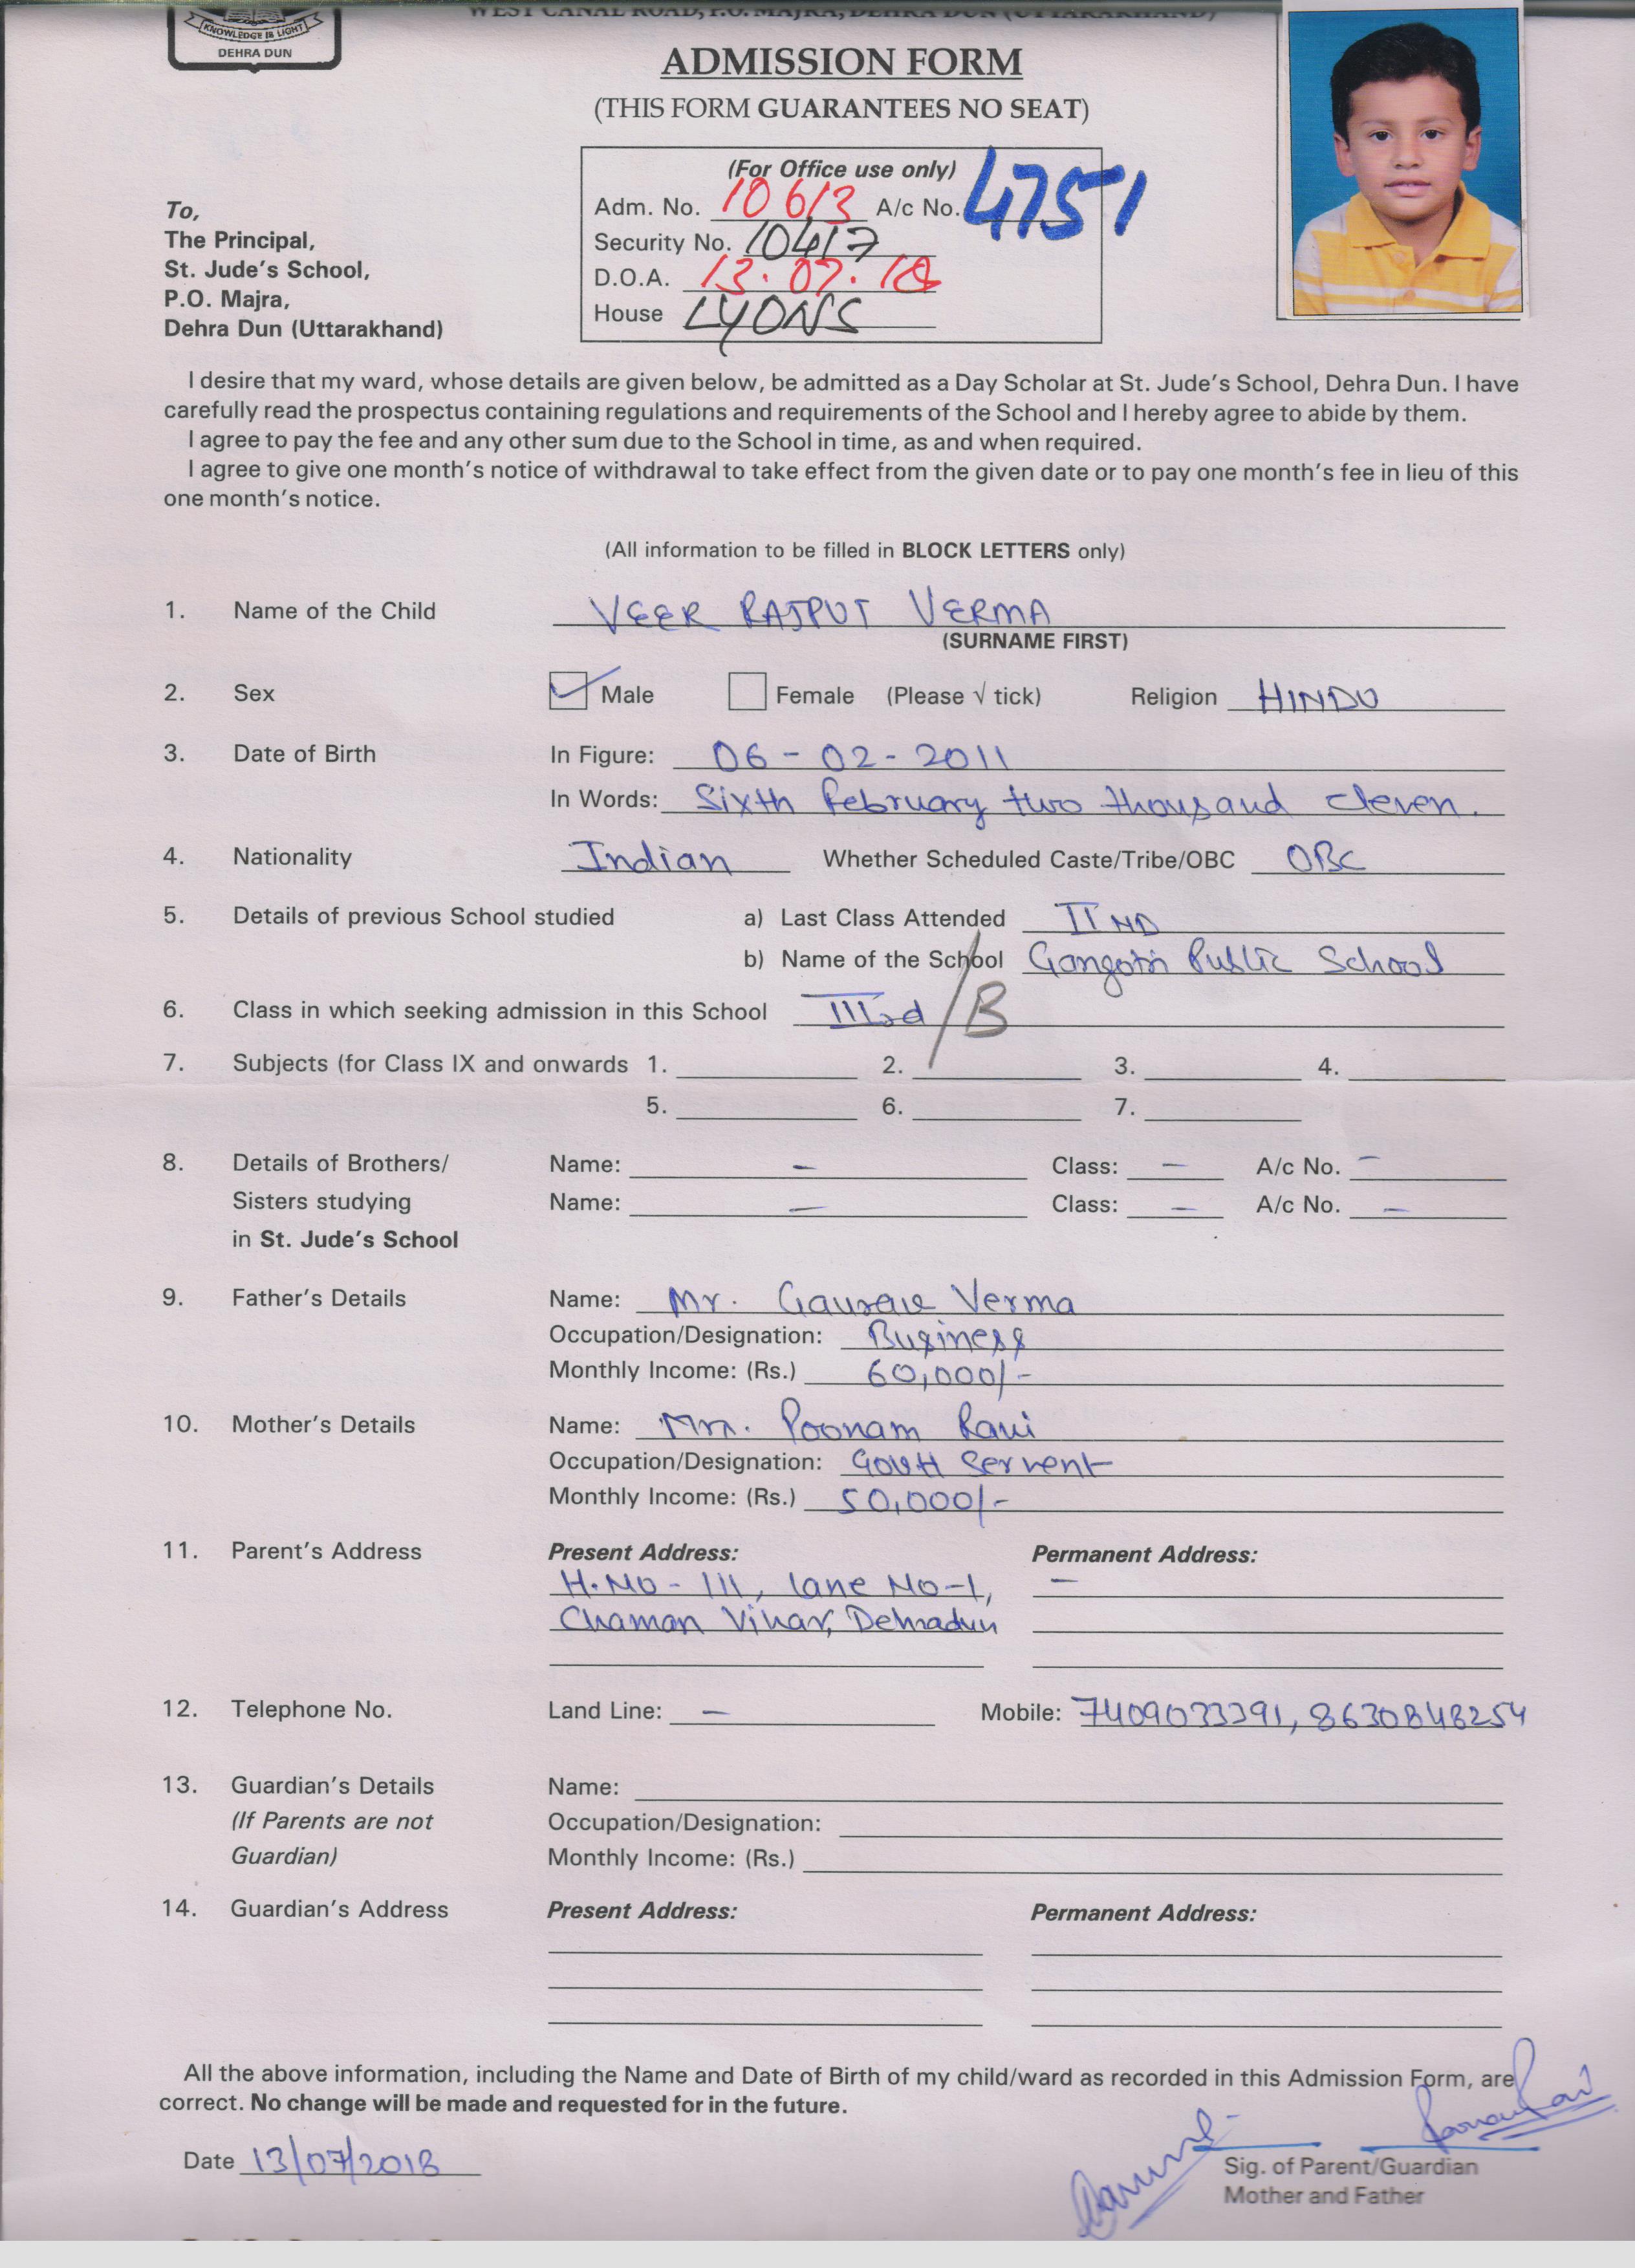 WEST CANAL ROAD, P.O. MAJRA, DEHRA DUN (UTTARAKHAND)
KNOWLEDGE IS LIGHT
DEHRA DUN
ADMISSION FORM
(THIS FORM GUARANTEES NO SEAT)
(For Office use only)
Adm. No. 10613 A/c No. 4751
Security No. 10417
D.O.A. 13.07.18
House LYONS
To,
The Principal,
St. Jude's School,
P.O. Majra,
Dehra Dun (Uttarakhand)
I desire that my ward, whose details are given below, be admitted as a Day Scholar at St. Jude's School, Dehra Dun. I have
carefully read the prospectus containing regulations and requirements of the School and I hereby agree to abide by them.
I agree to pay the fee and any other sum due to the School in time, as and when required.
I agree to give one month's notice of withdrawal to take effect from the given date or to pay one month's fee in lieu of this
one month's notice.
(All information to be filled in BLOCK LETTERS only)
1. Name of the Child VEER RAJPUT VERMA
(SURNAME FIRST)
2. Sex Male Female (Please √ tick) Religion HINDU
3. Date of Birth In Figure: 06-02-2011
In Words: Sixth February two thousand eleven.
4. Nationality Indian Whether Scheduled Caste/Tribe/OBC OBC
5. Details of previous School studied a) Last Class Attended II ND
b) Name of the School Gangotri Public School
6. Class in which seeking admission in this School IIIrd/B
7. Subjects (for Class IX and onwards 1. 2. 3. 4.
5. 6. 7.
8. Details of Brothers/ Name: - Class: - A/c No. -
Sisters studying Name: - Class: - A/c No. -
in St. Jude's School
9. Father's Details Name: Mr. Gaurav Verma
Occupation/Designation: Business
Monthly Income: (Rs.) 60,000/-
10. Mother's Details Name: Mrs. Poonam Ravi
Occupation/Designation: Govtt Servent
Monthly Income: (Rs.) 50,000/-
11. Parent's Address Present Address: Permanent Address:
H.NO - 111, lane No-1, -
Chaman Vihar, Dehradun
12. Telephone No. Land Line: - Mobile: 7409033391, 8630848254
13. Guardian's Details Name:
(If Parents are not Occupation/Designation:
Guardian) Monthly Income: (Rs.)
14. Guardian's Address Present Address: Permanent Address:
All the above information, including the Name and Date of Birth of my child/ward as recorded in this Admission Form, are
correct. No change will be made and requested for in the future.
Date 13/07/2018
Sig. of Parent/Guardian
Mother and Father